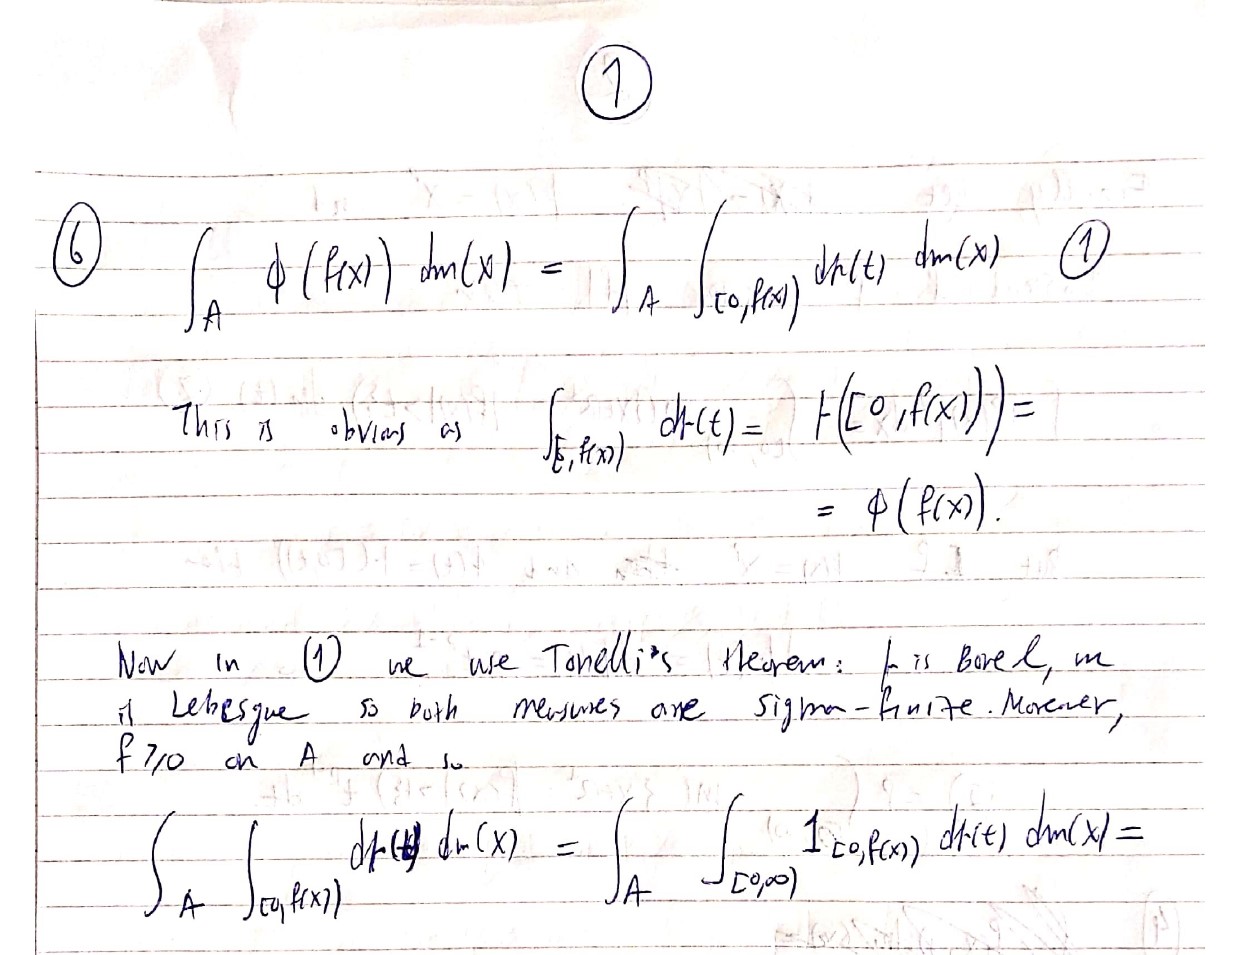 ①
⑥ ∫_A ϕ(f(x)) dm(x) = ∫_A ∫_[0,f(x)) dμ(t) dm(x) ①
This is obvious as ∫_[0,f(x)) dμ(t) = μ([0,f(x))) =
= ϕ(f(x)).
Now in ① we use Tonelli's theorem: μ is Borel, m
is Lebesgue so both measures are sigma-finite. Moreover,
f ≥ 0 on A and so
∫_A ∫_[0,f(x)) dμ(t) dm(x) = ∫_A ∫_[0,∞) 1_[0,f(x)) dμ(t) dm(x) =